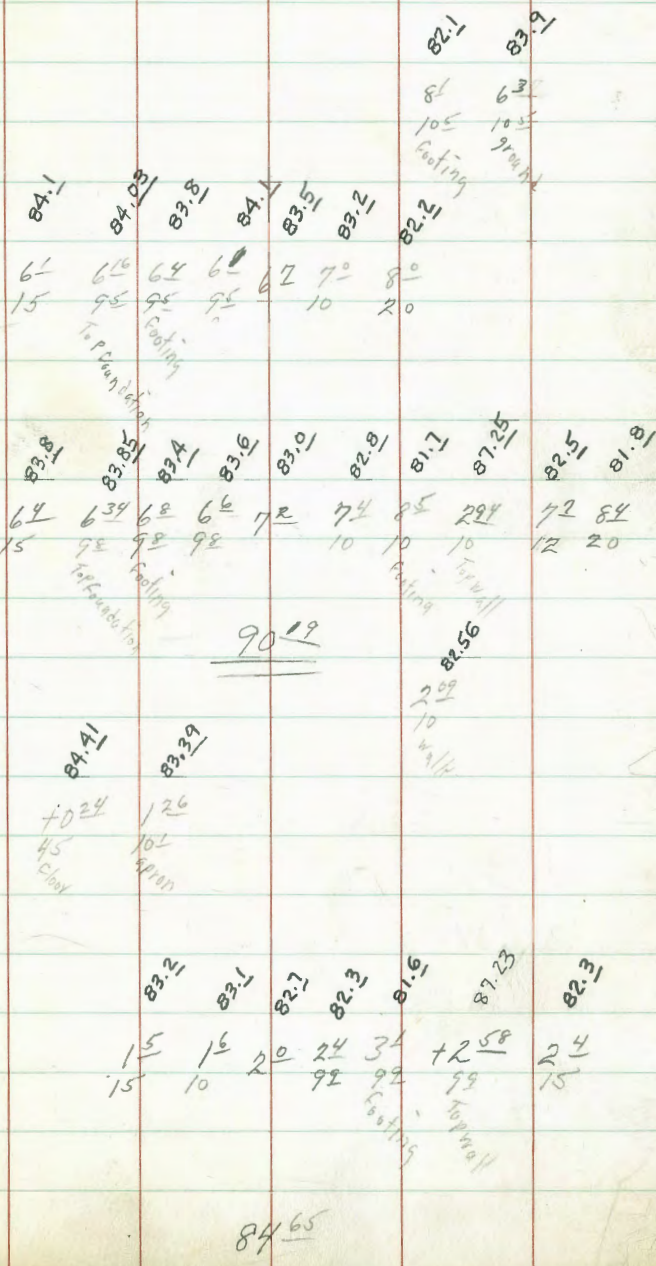 82.1 83.9
8 1 6 3
10 5 10 5
footing ground
84.1 84.03 83.8 84.1 83.5 83.2 82.2
6 1 6 16 6 4 6 1 6 7 7 0 8 0
15 9 5 9 5 9 5 10 20
Top foundation footing
83.8 83.85 83.4 83.6 83.0 82.8 81.7 87.25 82.5 81.8
6 4 6 34 6 8 6 6 7 2 7 4 8 5 2 94 7 7 8 4
15 9 8 9 8 9 8 10 10 10 12 20
Top foundation footing footing Top wall
90 19
82.56
2 09
10
walk
84.41 83.39
+0 24 1 26
45 10 1
floor apron
83.2 83.1 82.7 82.3 81.6 87.23 82.3
1 5 1 6 2 0 2 4 3 1 +2 58 2 4
15 10 9 9 9 9 9 9 15
footing Top wall
84 65